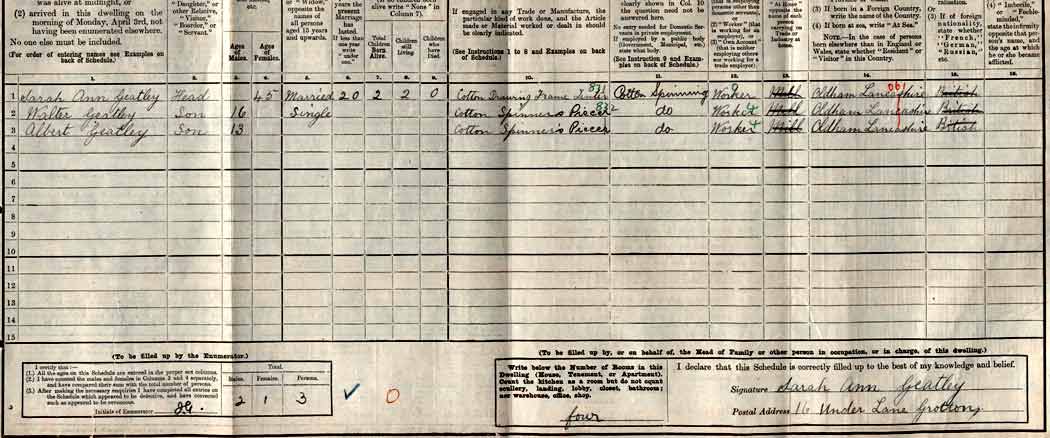 was alive at midnight, or
(2) arrived in this dwelling on the morning of Monday, April 3rd, not having been enumerated elsewhere.
No one else must be included.
(For order of entering names see Examples on back of Schedule.)
"Daughter," or other Relative, "Visitor," "Boarder," or "Servant."
Ages of Males.
Ages of Females.
or "Widow," opposite the names of all persons aged 15 years and upwards.
years the present Marriage has lasted. If less than one year write "under one."
alive write "None" in Column 7).
Total Children Born Alive.
Children still Living.
Children who have Died.
If engaged in any Trade or Manufacture, the particular kind of work done, and the Article made or Material worked or dealt in should be clearly indicated.
(See Instructions 1 to 8 and Examples on back of Schedule.)
clearly shown in Col. 10 the question need not be answered here.
No entry needed for Domestic Servants in private employment.
If employed by a public body (Government, Municipal, etc.) state what body.
(See Instruction 9 and Examples on back of Schedule.)
(2) "Worker" (that is working for an employer), or
(3) "Own Account" (that is neither employing others nor working for a trade employer)
(3) If born in a Foreign Country, write the name of the Country.
(4) If born at sea, write "At Sea."
NOTE.—In the case of persons born elsewhere than in England or Wales, state whether "Resident" or "Visitor" in this Country.
(3) If of foreign nationality, state whether "French," "German," "Russian," etc.
(4) "Imbecile," or "Feeble-minded," state the infirmity opposite that person's name, and the age at which he or she became afflicted.
1. 2. 3. 4. 5. 6. 7. 8. 9. 10. 11. 12. 13. 14. 15. 16.
1 Sarah Ann Geatley Head 45 Married 20 2 2 0 Cotton Drawing Frame Tenter Cotton Spinning Worker Oldham Lancashire British
2 Walter Geatley Son 16 Single Cotton Spinners Piecer do Worker Oldham Lancashire British
3 Albert Geatley Son 13 Cotton Spinners Piecer do Worker Oldham Lancashire British
4
5
6
7
8
9
10
11
12
13
14
15
(To be filled up by the Enumerator.)
I certify that:—
(1.) All the ages on this Schedule are entered in the proper sex columns.
(2.) I have counted the males and females in Columns 3 and 4 separately, and have compared their sum with the total number of persons.
(3.) After making the necessary enquiries I have completed all entries on the Schedule which appeared to be defective, and have corrected such as appeared to be erroneous.
Initials of Enumerator
Total.
Males. Females. Persons.
2 1 3
(To be filled up by, or on behalf of, the Head of Family or other person in occupation, or in charge, of this dwelling.)
Write below the Number of Rooms in this Dwelling (House, Tenement, or Apartment). Count the kitchen as a room but do not count scullery, landing, lobby, closet, bathroom; nor warehouse, office, shop.
four
I declare that this Schedule is correctly filled up to the best of my knowledge and belief.
Signature Sarah Ann Geatley
Postal Address 16 Under Lane Grotton